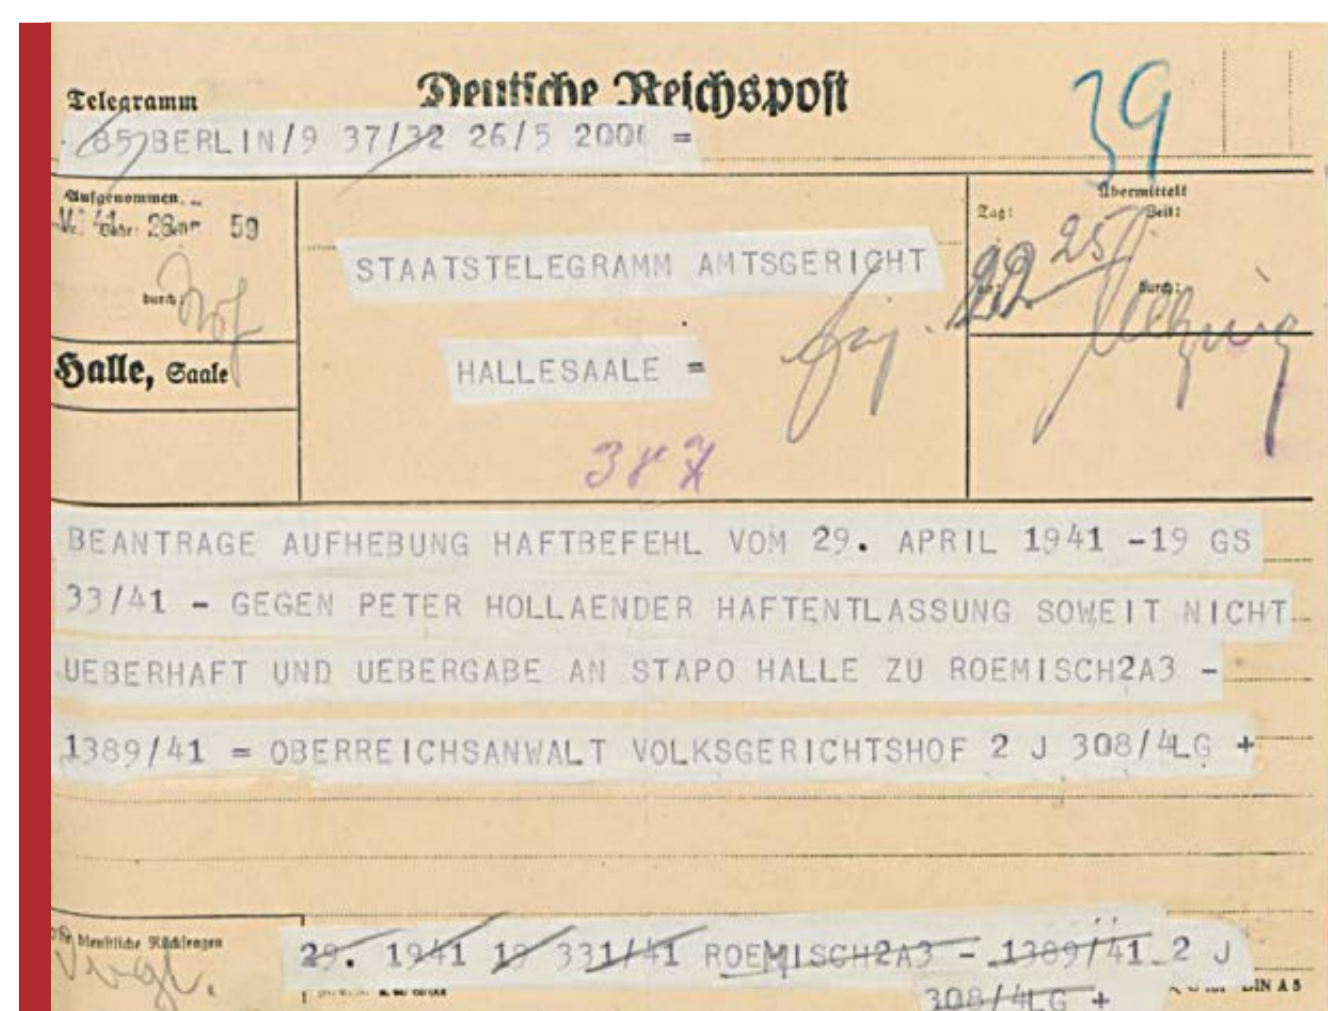 Deutsche Reichspost
Telegramm
85 BERLIN/9 37/32 26/5 2000 =
39
Aufgenommen
59
durch:
Übermittelt
Tag: Zeit:
durch:
STAATSTELEGRAMM AMTSGERICHT
Halle, Saale
HALLESAALE =
387
BEANTRAGE AUFHEBUNG HAFTBEFEHL VOM 29. APRIL 1941 -19 GS
33/41 - GEGEN PETER HOLLAENDER HAFTENTLASSUNG SOWEIT NICHT
UEBERHAFT UND UEBERGABE AN STAPO HALLE ZU ROEMISCH2A3 -
1389/41 = OBERREICHSANWALT VOLKSGERICHTSHOF 2 J 308/4LG +
dienstliche Rückfragen
29. 1941 19 331/41 ROEMISCH2A3 - 1389/41 2 J
308/4LG +
DIN A5